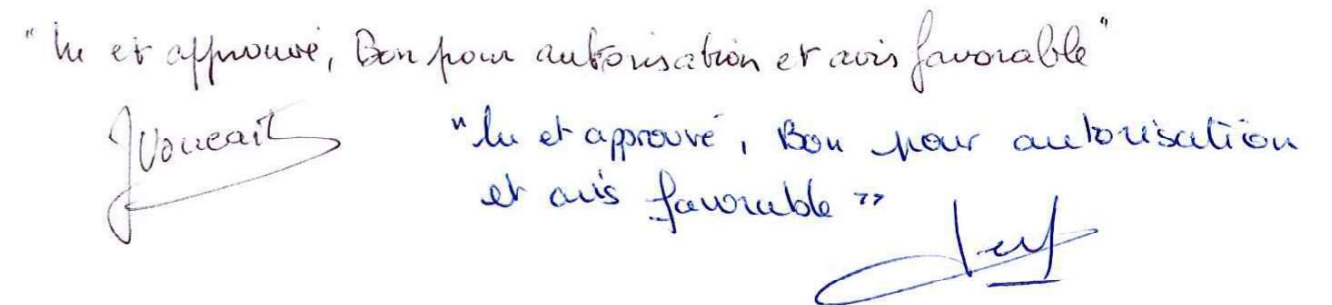 "lu et approuvé, Bon pour autorisation et avis favorable"
"lu et approuvé, Bon pour autorisation
et avis favorable"